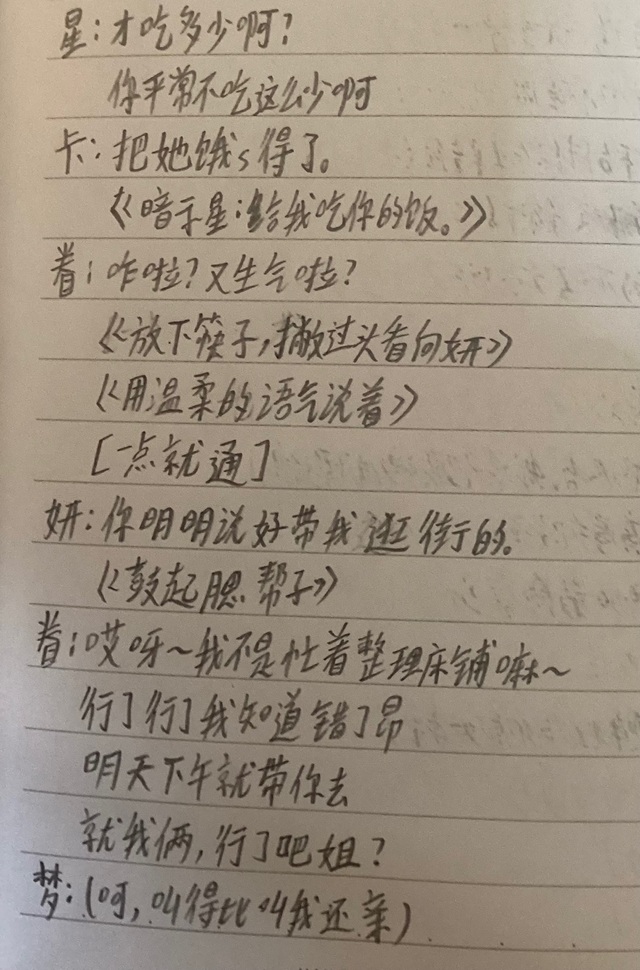 星：才吃多少啊？
你平常不吃这么少啊
卡：把她饿s得了。
《暗示星：给我吃你的饭。》
眷：咋啦？又生气啦？
《放下筷子，撇过头看向妍》
《用温柔的语气说着》
[一点就通]
妍：你明明说好带我逛街的。
《鼓起腮帮子》
眷：哎呀～我不是忙着整理床铺嘛～
行了行了我知道错了昂
明天下午就带你去
就我俩，行了吧姐？
梦：(呵，叫得比叫我还亲)